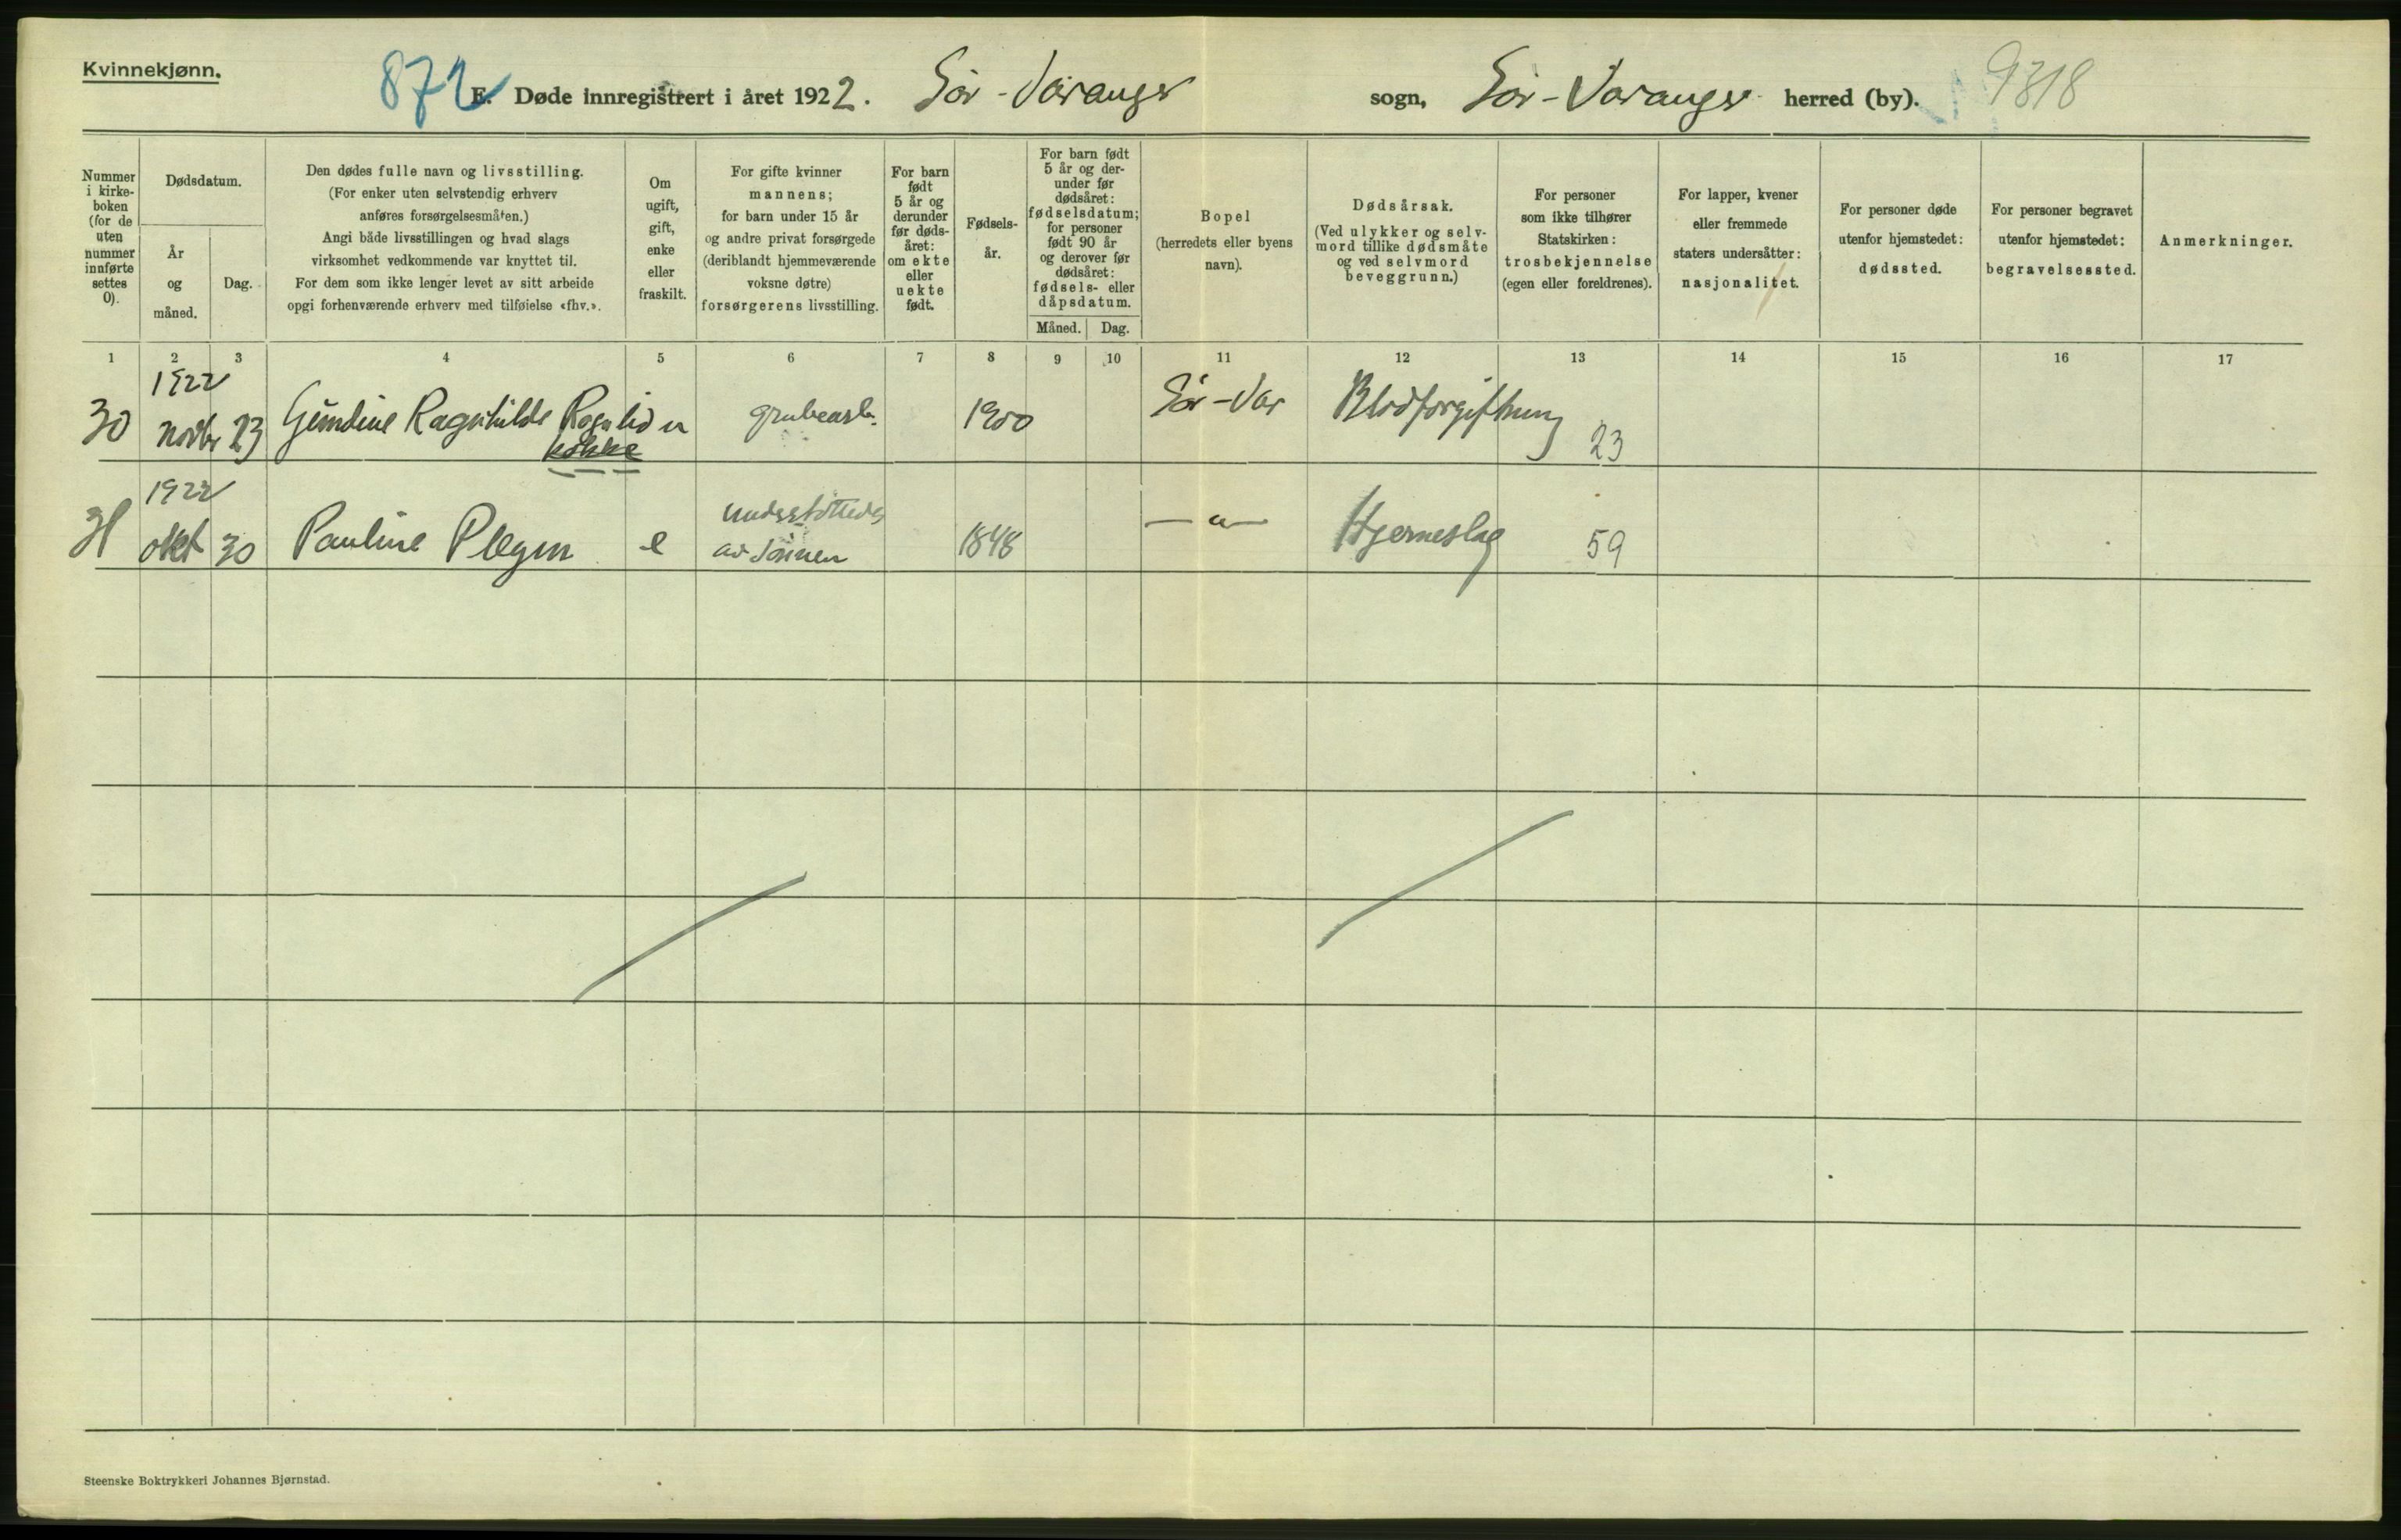 Kvinnekjønn.
872
E. Døde innregistrert i året 1922. Sør-Varanger sogn, Sør-Varanger herred (by). 9318
Nummer i kirke- boken (for de uten nummer innførte settes 0).
Dødsdatum.
År og måned.
Dag.
Den dødes fulle navn og livsstilling.
(For enker uten selvstendig erhverv
anføres forsørgelsesmåten.)
Angi både livsstillingen og hvad slags
virksomhet vedkommende var knyttet til.
For dem som ikke lenger levet av sitt arbeide
opgi forhenværende erhverv med tilføielse «fhv.».
Om
ugift,
gift,
enke
eller
fraskilt.
For gifte kvinner
mannens;
for barn under 15 år
og andre privat forsørgede
(deriblandt hjemmeværende
voksne døtre)
forsørgerens livsstilling.
For barn
født
5 år og
derunder
før døds-
året:
om ekte
eller
uekte
født.
Fødsels-
år.
For barn født
5 år og der-
under før
dødsåret:
fødselsdatum;
for personer
født 90 år
og derover før
dødsåret:
fødsels- eller
dåpsdatum.
Måned. Dag.
Bopel
(herredets eller byens
navn).
Dødsårsak.
(Ved ulykker og selv-
mord tillike dødsmåte
og ved selvmord
beveggrunn.)
For personer
som ikke tilhører
Statskirken:
trosbekjennelse
(egen eller foreldrenes).
For lapper, kvener
eller fremmede
staters undersåtter:
nasjonalitet.
For personer døde
utenfor hjemstedet:
dødssted.
For personer begravet
utenfor hjemstedet:
begravelsessted.
Anmerkninger.
1 2 3 4 5 6 7 8 9 10 11 12 13 14 15 16 17
1922
30 novbr 23 Gundine Ragnhilde Rognlid u grubearb. 1900 Sør-Var Blodforgiftning 23
kokke
1922
31 okt 30 Pauline e understøttedes av sønnen 1848 —"— Hjerneslag 59
Steenske Boktrykkeri Johannes Bjørnstad.